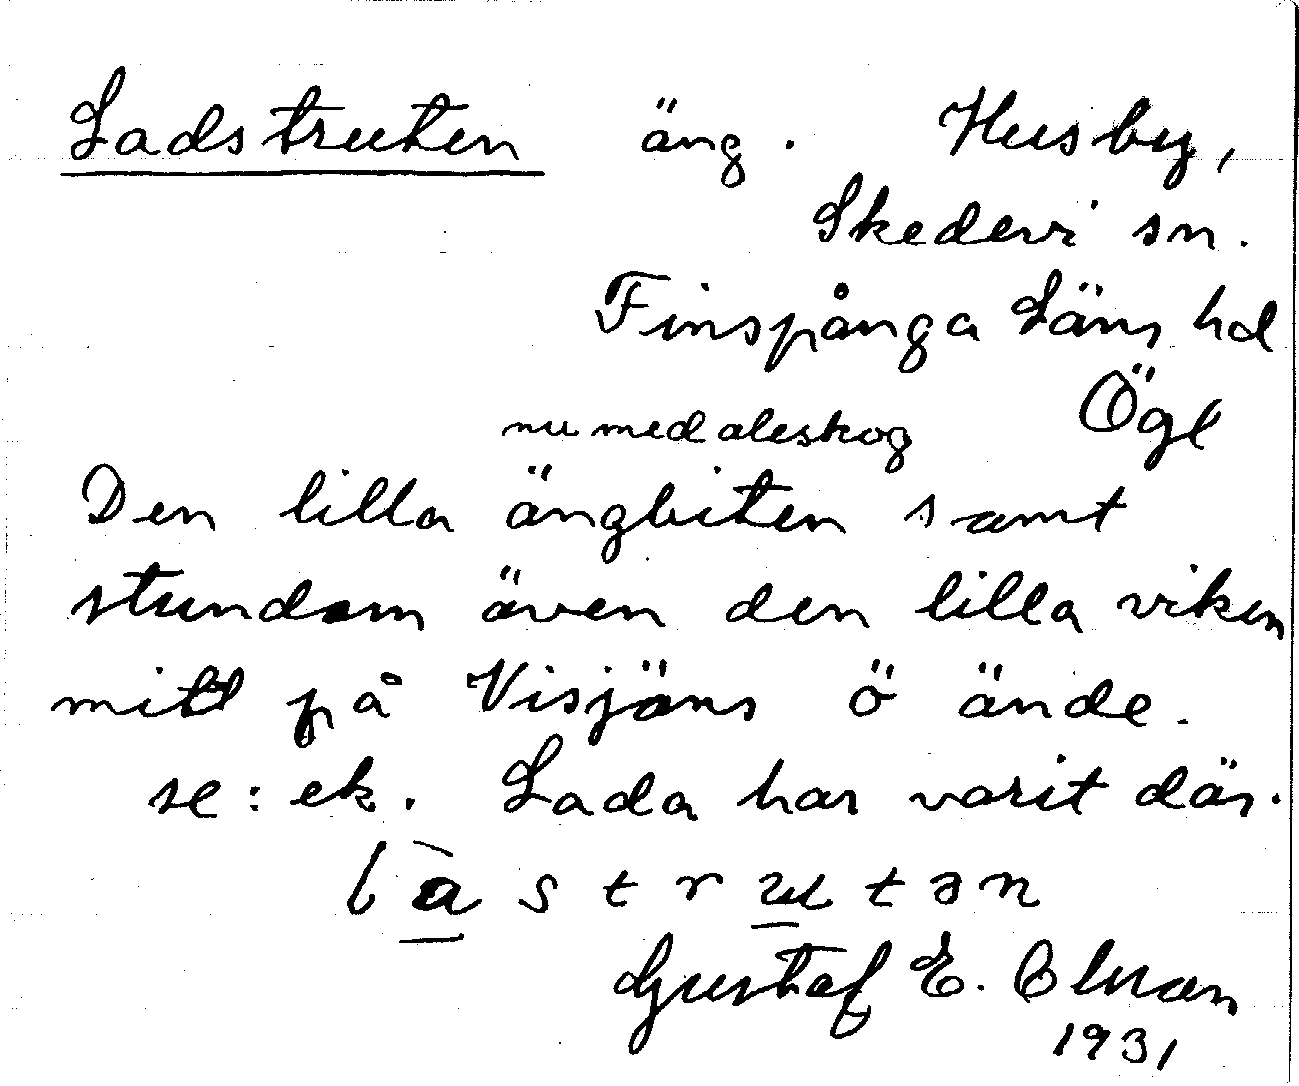 Ladstruten äng. Husby,
Skedevi sn.
Finspånga Läns hd
Ögl
nu med aleskog
Den lilla ängbiten samt
stundom även den lilla viken
mitt på Visjöns ö ände.
se: ek. Lada har varit där.
làstrutən
Gustaf E.
1931